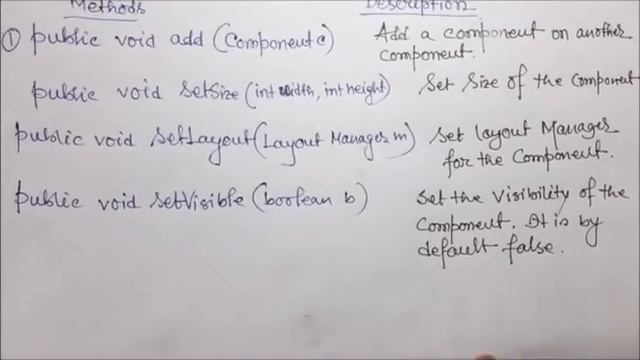 Methods Description
① public void add (Component c) Add a component on another
component.
public void setSize (int width, int height) Set size of the Component
public void setLayout (Layout Manager m) Set layout Manager
for the Component.
public void setVisible (boolean b) Set the Visibility of the
Component. It is by
default false.